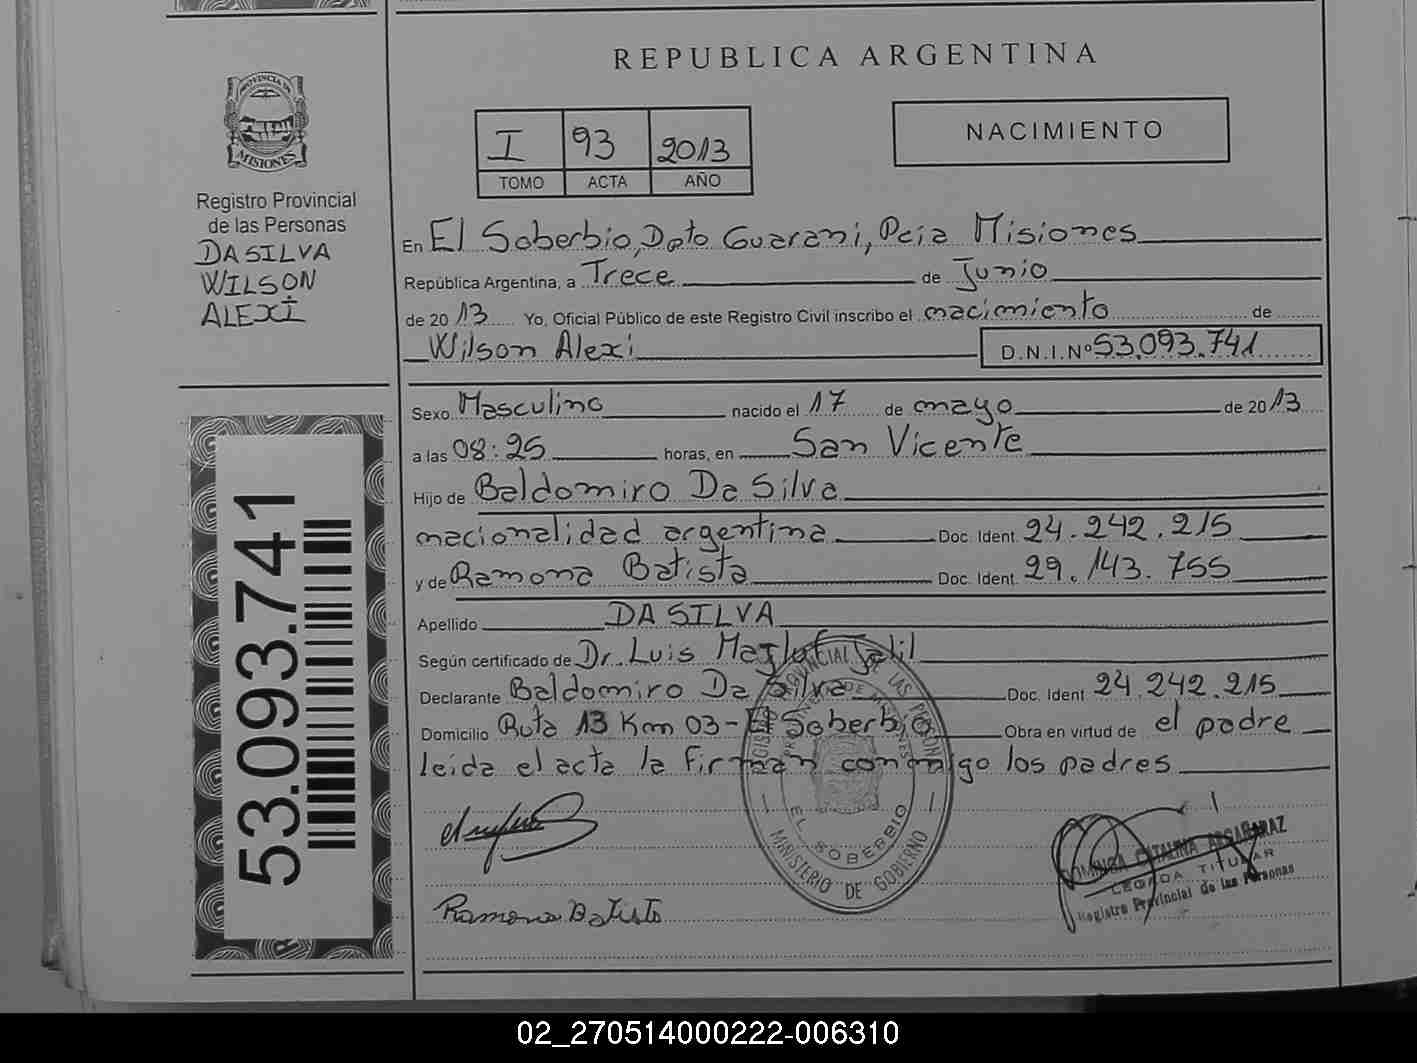 REPUBLICA ARGENTINA
PROVINCIA DE
MISIONES
Registro Provincial
de las Personas
DA SILVA
WILSON
ALEXI
53.093.741
I 93 2013
TOMO ACTA AÑO
NACIMIENTO
En El Soberbio, Dpto Guarani, Pcia Misiones
República Argentina, a Trece de Junio
de 2013 Yo, Oficial Público de este Registro Civil inscribo el nacimiento de
Wilson Alexi D.N.I.Nº 53.093.741
Sexo Masculino nacido el 17 de mayo de 2013
a las 08:25 horas, en San Vicente
Hijo de Baldomiro Da Silva
nacionalidad argentina Doc. Ident. 24.242.215
y de Ramona Batista Doc. Ident. 29.143.755
Apellido DA SILVA
Según certificado de Dr. Luis Jalil
Declarante Baldomiro Da Silva Doc. Ident 24.242.215
Domicilio Ruta 13 Km 03 - El Soberbio Obra en virtud de el padre
leida el acta la firman conmigo los padres
EL SOBERBIO
MINISTERIO DE GOBIERNO
Ramona Batista
DOMINGA CATALINA ARGAÑARAZ
LEGADA TITULAR
Registro Provincial de las Personas
02_270514000222-006310